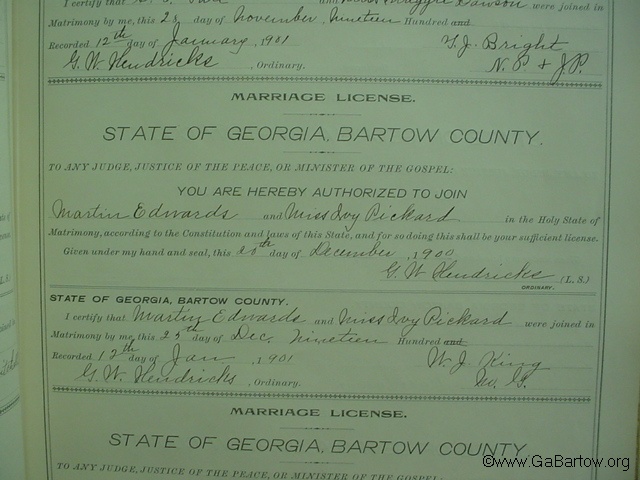 I certify that and Miss Maggie Dawson were joined in
Matrimony by me, this 28 day of November, Nineteen Hundred and
Recorded 12th day of January, 1901 T. J. Bright
G. W. Hendricks, Ordinary. N. P. & J. P.
MARRIAGE LICENSE.
STATE OF GEORGIA, BARTOW COUNTY.
TO ANY JUDGE, JUSTICE OF THE PEACE, OR MINISTER OF THE GOSPEL:
YOU ARE HEREBY AUTHORIZED TO JOIN
Martin Edwards and Miss Ivy Pickard in the Holy State of
Matrimony, according to the Constitution and laws of this State, and for so doing this shall be your sufficient license.
Given under my hand and seal, this 20th day of December, 1900
G. W. Hendricks (L. S.)
ORDINARY.
STATE OF GEORGIA, BARTOW COUNTY.
I certify that Martin Edwards and Miss Ivy Pickard were joined in
Matrimony by me, this 25th day of Dec, Nineteen Hundred and
Recorded 12th day of Jan, 1901 W. J. King
G. W. Hendricks, Ordinary. M. G.
MARRIAGE LICENSE.
STATE OF GEORGIA, BARTOW COUNTY.
TO ANY JUDGE, JUSTICE OF THE PEACE, OR MINISTER OF THE GOSPEL:
©www.GaBartow.org